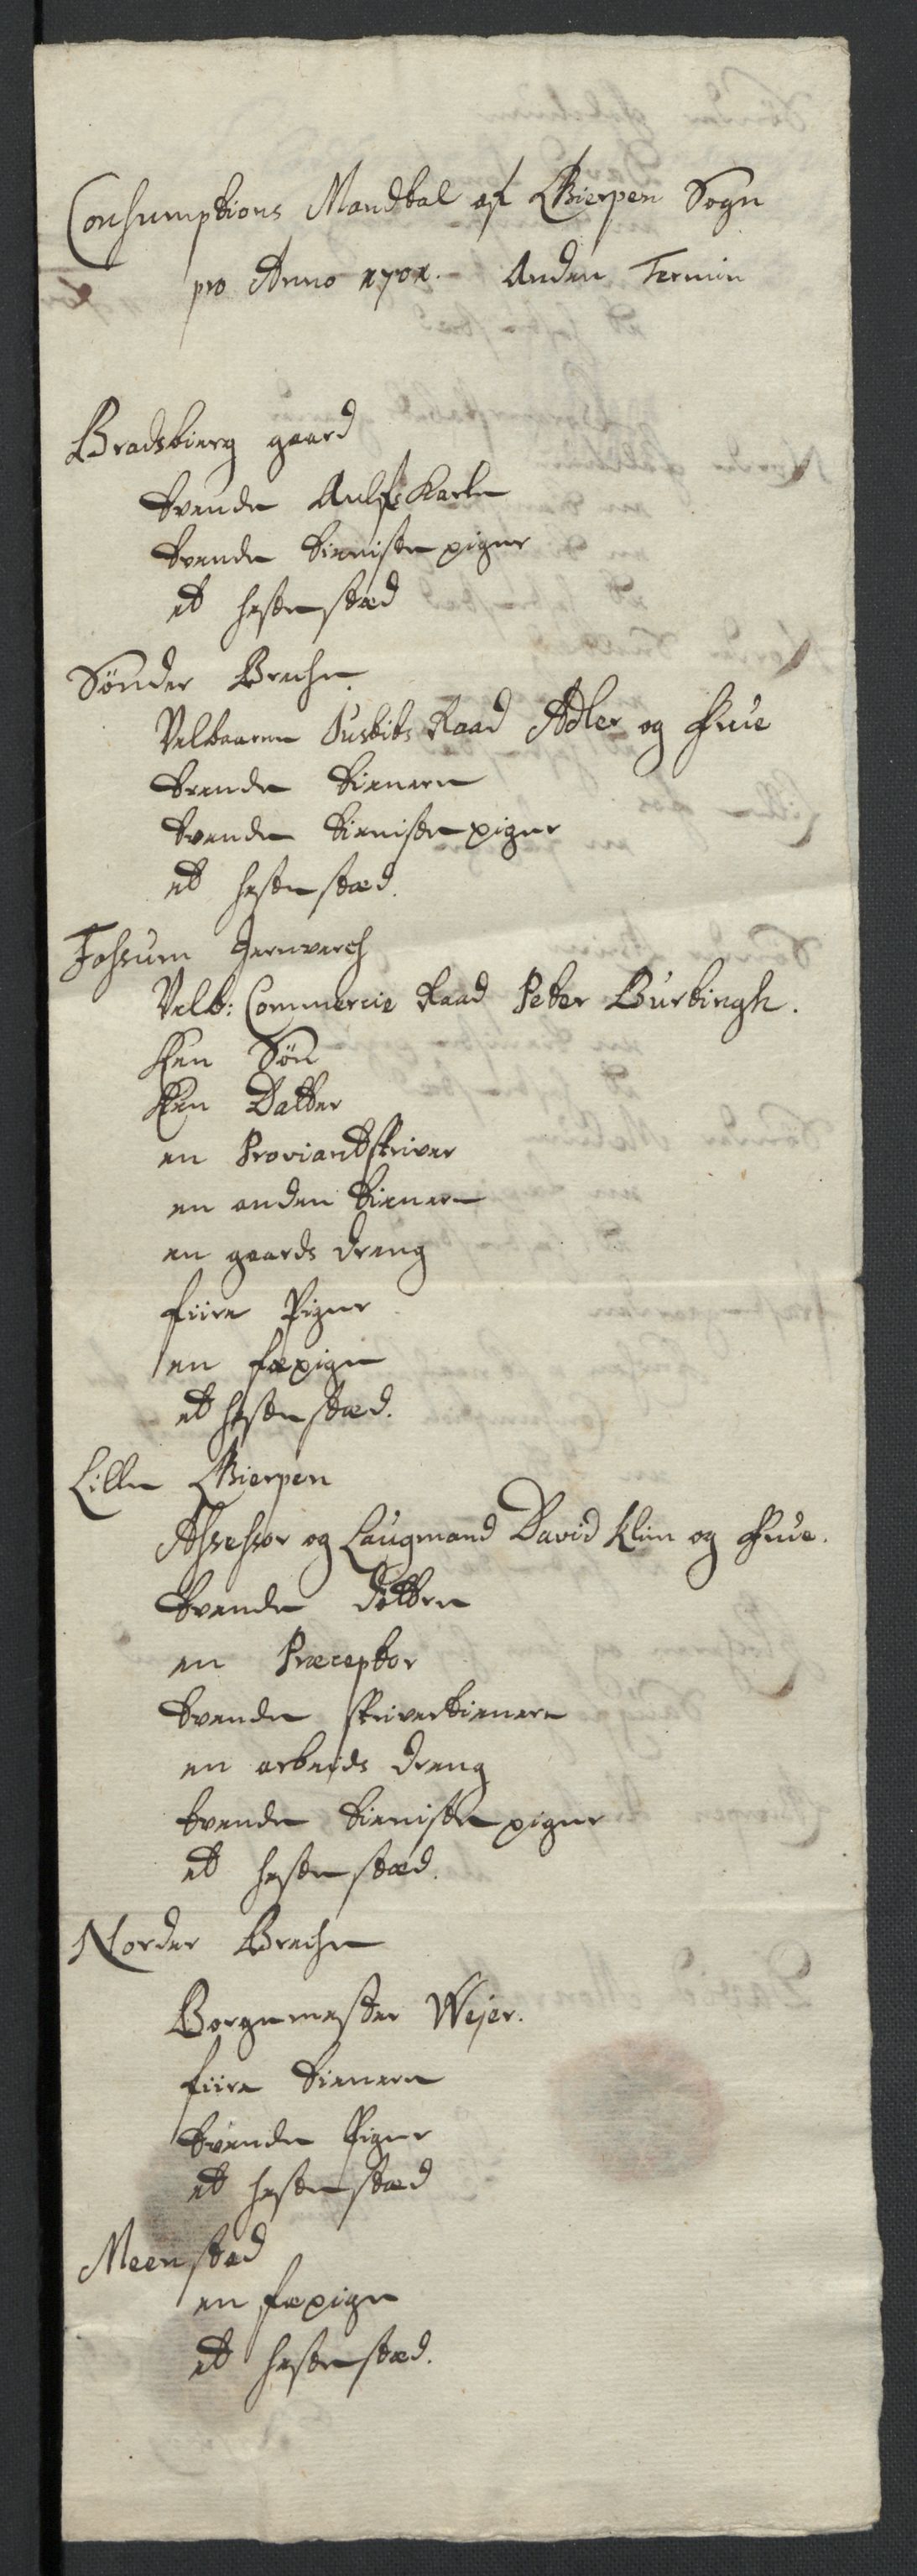 Consumptions Mandtal af Gierpen Sogn
pro Anno 1701. Anden Termin
Bradsbierg gaard
tvende Aulfs Karle
tvende tieniste piger
et hæstestæd
Sønder Breche
Velbaaren Justits Raad Adler og Frue
tvende tienere
tvende tieniste piger
et hæstestæd.
Fossum Jernverch
Velb: Commercie Raad Peter Bürtingh.
Een Søn
Een Datter
en Proviantskriver
en anden tienere
en gaards dreng
fiire Piger
en fæpige
et hæstestæd.
Lille Gierpen
Assessor og Laugmand David Klim og Frue.
tvende døttre
en Præceptor
tvende skrivertienere
en arbeids dreng
tvende tieniste piger
et hæstestæd.
Norder Breche
Borgemester Wejer.
fiire tienere
tvende Piger
et hæstestæd
Meenstad
en fæpige
et hæstestæd.